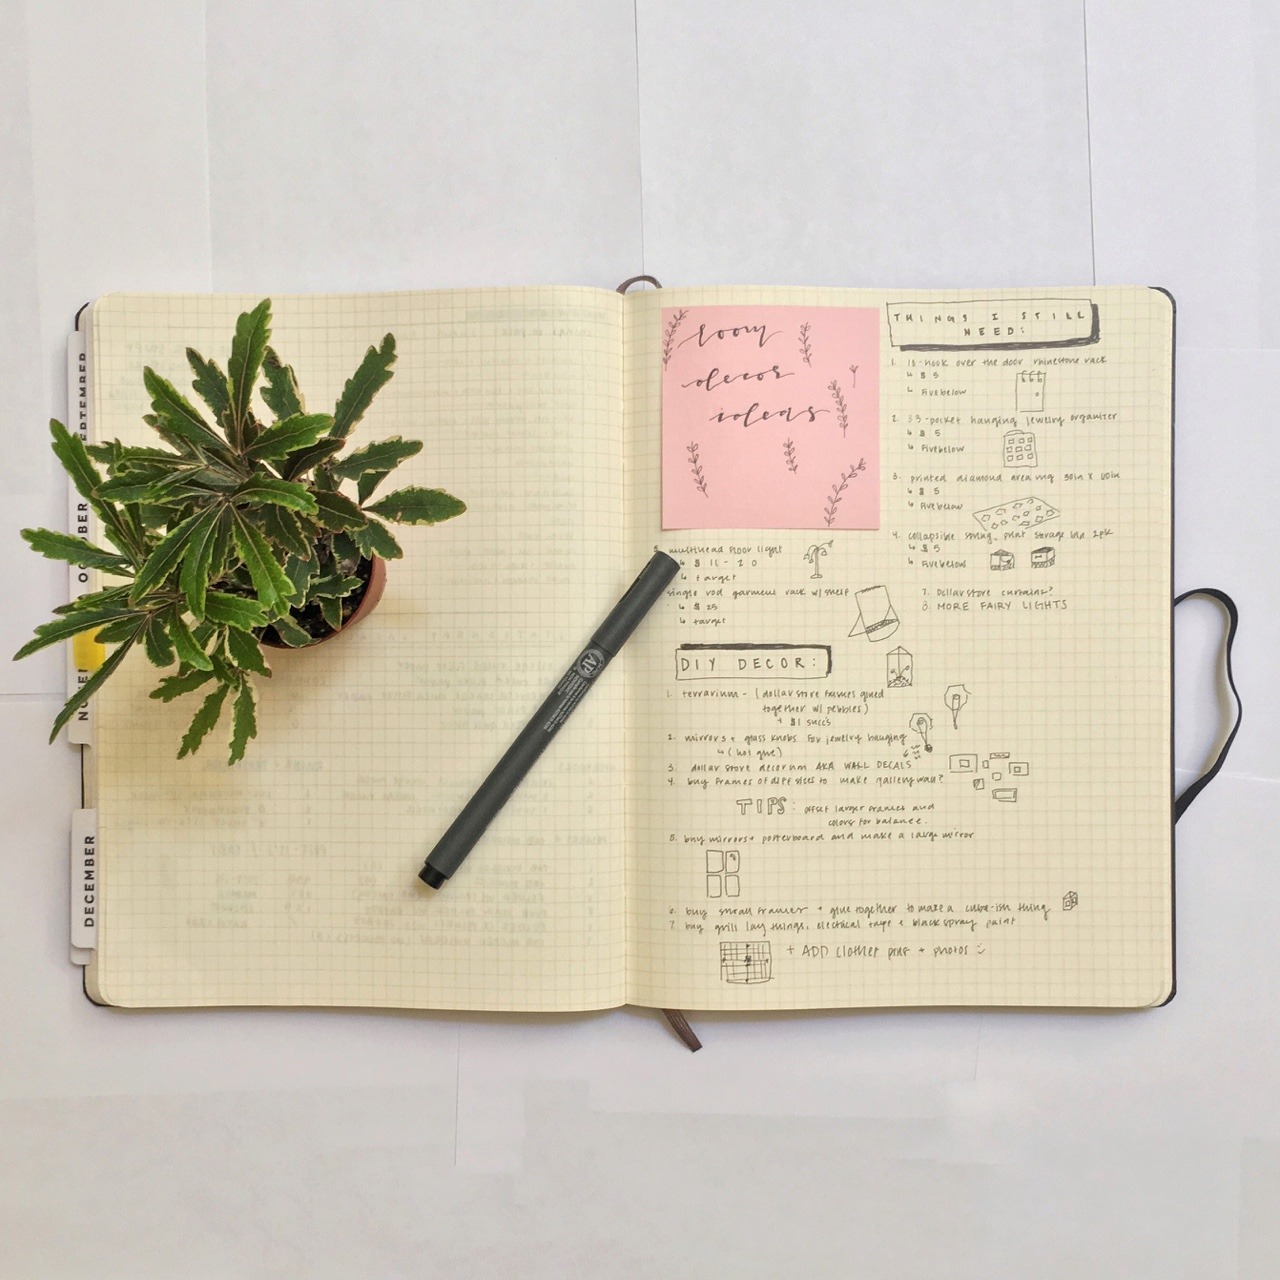 SEPTEMBER
OCTOBER
DECEMBER
room
decor
ideas
THINGS I STILL
NEED:
1. 18-hook over the door rhinestone rack
↳ $ 5
↳ Fivebelow
2. 33-pocket hanging jewelry organizer
↳ $ 5
↳ Fivebelow
3. printed diamond area rug 30in x 60in
↳ $ 5
↳ Fivebelow
4. collapsible spring print storage bin 2pk
↳ $ 5
↳ Fivebelow
multihead floor light
↳ $ 11 - 20
↳ target
single rod garment rack w/ shelf
↳ $ 25
↳ target
7. Dollar store curtains?
8. MORE FAIRY LIGHTS
DIY DECOR:
1. terrarium - (dollar store frames glued
together w/ pebbles)
+ $1 succs
2. mirrors + glass knobs for jewelry hanging
↳ (hot glue)
3. dollar store decorum AKA WALL DECALS
4. buy frames of diff sizes to make gallery wall?
TIPS: offset larger frames and
colors for balance.
5. buy mirrors + posterboard and make a large mirror
6. buy small frames + glue together to make a cube-ish thing
7. buy grill lay things, electrical tape + black spray paint
+ ADD clothes pins + photos :)
AP